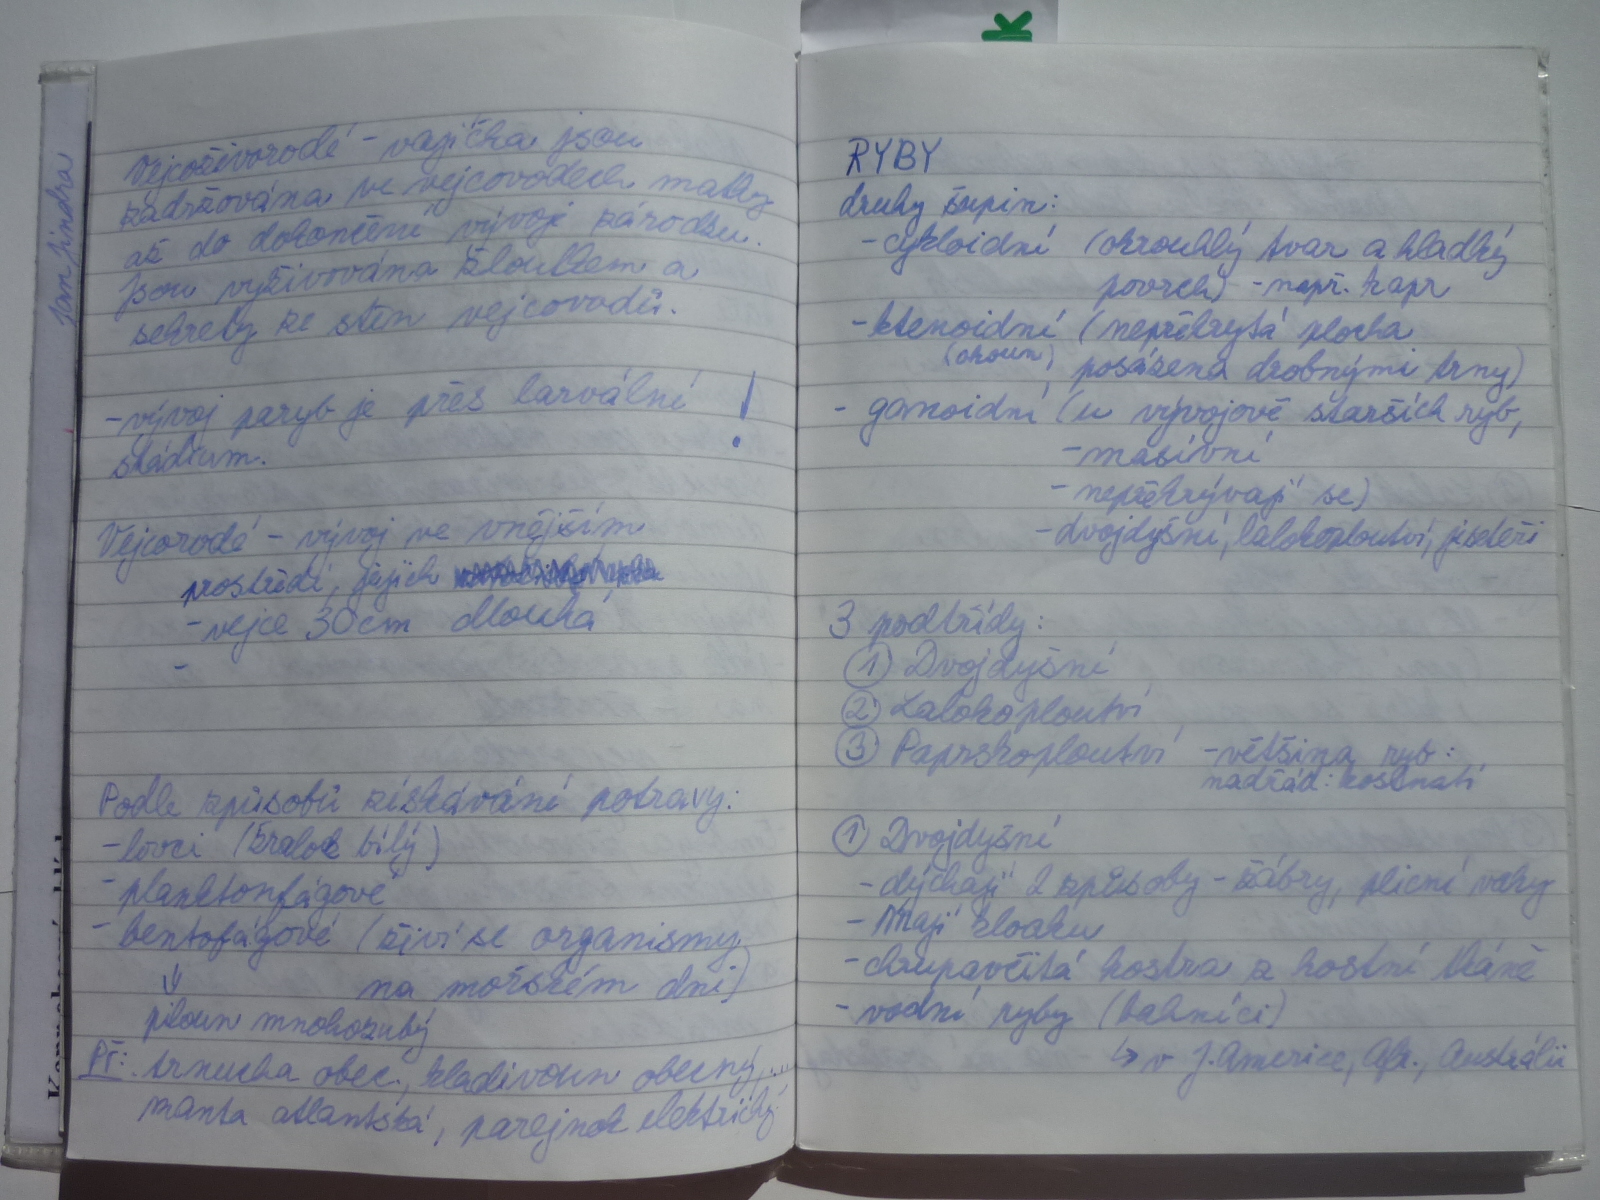 Jan Jindra
Vejcoživorodé - vajíčka jsou
zadržována ve vejcovodech matky
až do dokončení vývoje zárodku.
Jsou vyživována žloutkem a
sekrety ze stěn vejcovodů.
- vývoj paryb je přes larvální !
stádium.
Vejcorodé - vývoj ve vnějším
prostředí, jejich
- vejce 30cm dlouhá
-
Podle způsobů získávání potravy:
- lovci (žralok bílý)
- planktonfágové
- bentofágové (živí se organismy
na mořském dni)
↓
piloun mnohozubý
Př: trnucha obec., kladivoun obecný, ...
manta atlantská, parejnok elektrický
RYBY
druhy šupin:
- cykloidní (okrouhlý tvar a hladký
povrch) - např. kapr
- ktenoidní (nepřekrytá plocha
(okoun) posázena drobnými trny)
- ganoidní (u vývojově starších ryb,
- masivní
- nepřekrývají se)
- dvojdyšní, lalokoploutví, jeseteři
3 podtřídy:
① Dvojdyšní
② Lalokoploutví
③ Paprskoploutví - většina ryb:
nadřád: kostnatí
① Dvojdyšní
- dýchají 2 způsoby - žábry, plicní vaky
- Mají kloaku
- chrupavčitá kostra z kostní tkáně
- vodní ryby (bahníci)
↳ v J. Americe, Afr., Austrálii